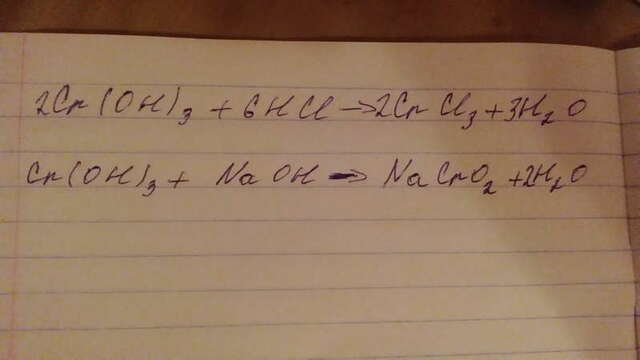 2Cr(OH)₃ + 6HCl → 2CrCl₃ + 3H₂O
Cr(OH)₃ + NaOH → NaCrO₂ + 2H₂O